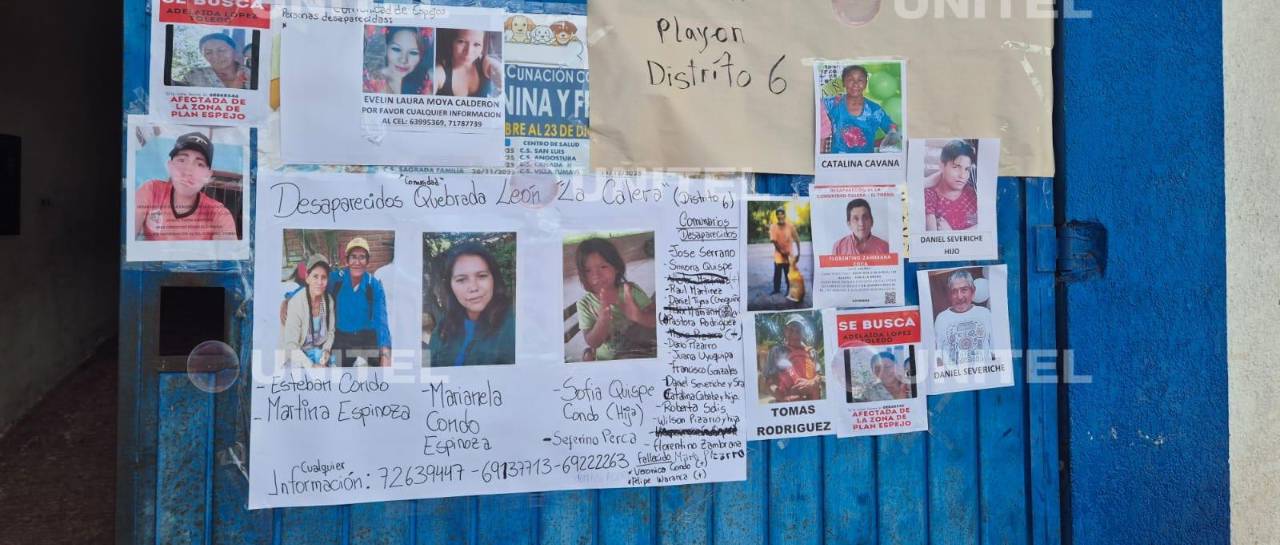 SE BUSCA
ADELAIDA LOPEZ
TOLEDO
AFECTADA DE
LA ZONA DE
PLAN ESPEJO
Comunidad de Espejos
Personas desaparecidas:
EVELIN LAURA MOYA CALDERON
POR FAVOR CUALQUIER INFORMACION
AL CEL: 63995369, 71787739
CUNACIÓN CO
NINA Y F
BRE AL 23 DE DI
CENTRO DE SALUD
C.S. SAN LUIS
C.S. ANGOSTURA
C.S. VILLA TUNARI
SAGRADA FAMILIA
Playon
Distrito 6
UNITEL
UNITEL
CATALINA CAVANA
DANIEL SEVERICHE
HIJO
FLORENTINO ZAMBRANA
DANIEL SEVERICHE
TOMAS
RODRIGUEZ
SE BUSCA
ADELAIDA LOPEZ
TOLEDO
AFECTADA DE
LA ZONA DE
PLAN ESPEJO
"Comunidad"
Desaparecidos Quebrada León "La Calera" (Distrito 6)
- Esteban Condo
- Martina Espinoza
- Marianela
Condo
Espinoza
- Sofia Quispe
Condo (Hija)
- Seferino Perca
Cualquier
Información: 72639447 - 69137713 - 69222263
Comunarios
Desaparecidos
- Jose Serrano
- Simona Quispe
- Raul Martinez
- Pastora Rodriguez
- Dario Pizarro
- Juana Uyuquipa
- Francisco Gonzales
- Daniel Severiche y Sra
- Roberta Solis
- Wilson Pizario y hija
- Florentino Zambrana
Fallecido
• Veronica Condo (+)
• Felipe Waranca (+)
UNITEL
UNITEL